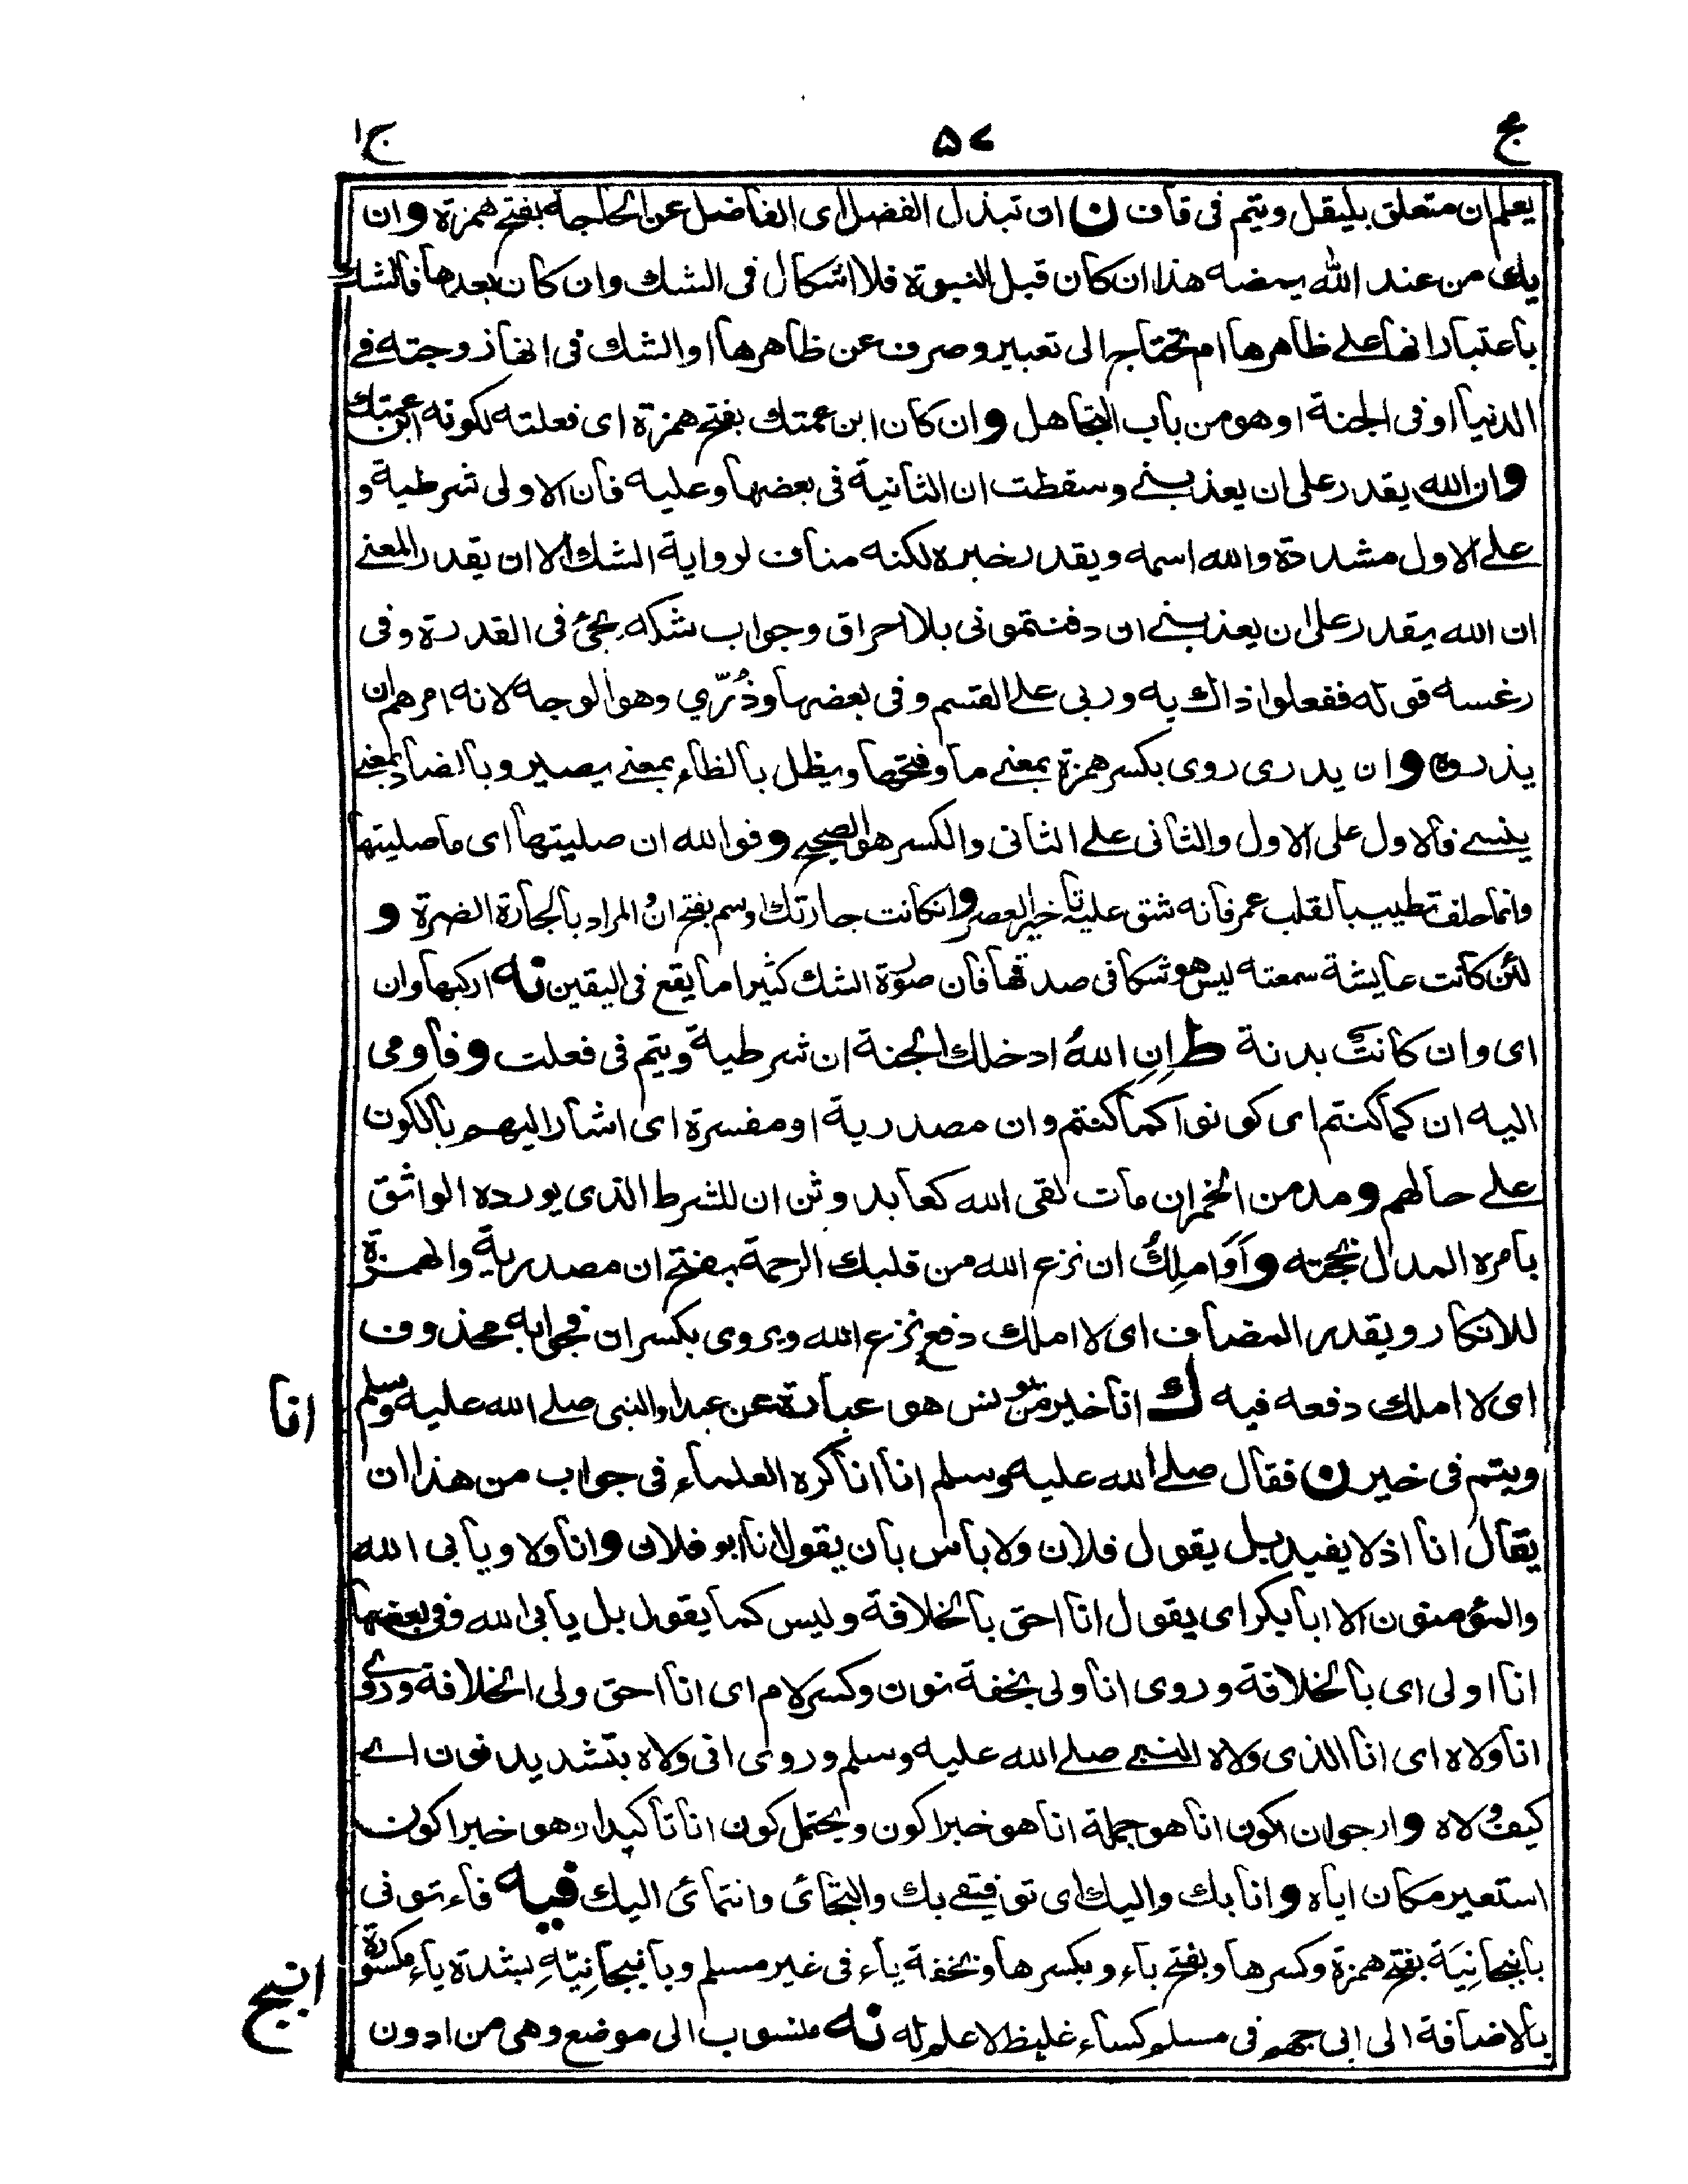 مج ٥٧ ج١
يعلم ان متعلق بليقل ويتم فى قاف ن ان تبذل الفضل اى الفاضل عن الحاجة بفتح همزة وان
يك من عند الله يمضه هذا ان كان قبل النبوة فلا اشكال فى الشك وان كان بعدها فالشك
باعتبار انها على ظاهرها ام تحتاج الى تعبير وصرف عن ظاهرها او الشك فى انها زوجته فى
الدنيا او فى الجنة او هو من باب التجاهل وان كان ابن عمتك بفتح همزة اى فعلته لكونه ابن عمتك
وان الله يقدر على ان يعذبنى وسقطت ان الثانية فى بعضها وعليه فان الاولى شرطية و
على الاول مشددة والله اسمه ويقدر خبره لكنه مناف لرواية الشك الا ان يقدر المعنى
ان الله يقدر على ان يعذبنى ان دفنتمونى بلا احراق وجواب شكه يجئ فى القدرة وفى
رغسه قوله ففعلوا ذاك به وربى على القسم وفى بعضها وذُرّي وهو الوجه لانه امرهم ان
يذروه وان يدرى روى بكسر همزة بمعنى ما وفتحها ويظل بالظاء بمعنى يصير وبالضاد بمعنى
ينسى فالاول على الاول والثانى على الثانى والكسر هو الصحيح وفوالله ان صليتها اى ما صليتها
وانما حلف تطييبا لقلب عمر فانه شق عليه تاخير العصر وان كانت جارتك اوسم بفتح ان والمراد بالجارة الضرة و
لئن كانت عايشة سمعته ليس هو شكا فى صدقها فان صورة الشك كثيرا ما يقع فى اليقين نه اركبها وان
اى وان كانت بدنة ط ان الله ادخلك الجنة ان شرطية ويتم فى فعلت وفاومى
اليه ان كما كنتم اى كونوا كما كنتم وان مصدرية او مفسرة اى اشار اليهم بالكون
على حالهم ومدمن الخمر ان مات لقى الله كعابد وثن ان للشرط الذى يورده الواثق
بامره المدل بحجته وأوَاملك ان نزع الله من قلبك الرحمة بفتح ان مصدرية والهمزة
للانكار ويقدر المضاف اى لا املك دفع نزع الله ويروى بكسر ان فجوابه محذوف
اى لا املك دفعه فيه ك انا خير من يونس هو عبارة عن عبد او النبى صلى الله عليه وسلم
ويتم فى خير ن فقال صلى الله عليه وسلم انا انا كره العلماء فى جواب من هذا ان
يقال انا اذ لا يفيد بل يقول فلان ولا باس بان يقول انا ابو فلان وانا ولا ويأبى الله
والمؤمنون الا ابا بكر اى يقول انا احق بالخلافة وليس كما يقول بل يابى الله وفى بعضها
انا اولى اى بالخلافة وروى انا ولى بخفة نون وكسر لام اى انا احق ولى الخلافة وروى
انا ولاه اى انا الذى ولاه النبى صلى الله عليه وسلم وروى انى ولاه بتشديد نون اى
كيف ولاه وارجو ان اكون انا هو جملة انا هو خبر اكون ويحتمل كون انا تاكيدا وهو خبر اكون
استعير مكان اياه وانا بك واليك اى توفيقى بك والتجائى وانتمائى اليك فيه فاءتونى
بانبجانِيَة بفتح همزة وكسرها وبفتح باء وبكسرها وبخفة ياء فى غير مسلم وبانبجانِيّه بشدة ياء مكسورة
بالاضافة الى ابى جهم فى مسلم كساء غليظ لا علم له نه منسوب الى موضع وهى من ادون
انا
انبج